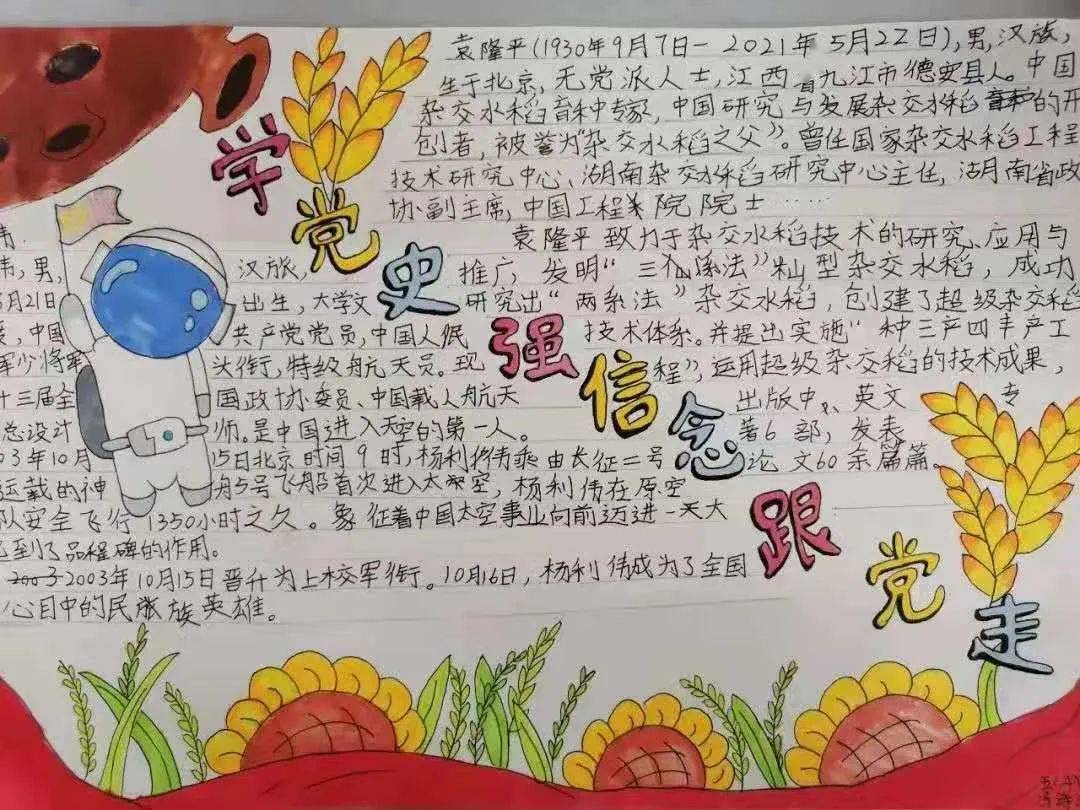 学党史强信念跟党走
袁隆平(1930年9月7日一2021年5月22日),男,汉族,
生于北京,无党派人士,江西省九江市德安县人。中国
杂交水稻育种专家,中国研究与发展杂交水稻的开
创者,被誉为"杂交水稻之父"。曾任国家杂交水稻工程
技术研究中心、湖南杂交水稻研究中心主任,湖南省政
协副主席,中国工程院院士……
袁隆平致力于杂交水稻技术的研究、应用与
推广,发明"三系法"籼型杂交水稻,成功
研究出"两系法"杂交水稻,创建了超级杂交稻
技术体系。并提出实施"种三产四丰产工
程",运用超级杂交稻的技术成果,
出版中、英文专
著6部,发表
论文60余篇篇
伟
伟,男,汉族,
月21日出生,大学文
中国共产党党员,中国人民
军少将军衔,特级航天员。现
十三届全国政协委员、中国载人航天
总设计师。是中国进入天空的第一人。
03年10月15日北京时间9时,杨利伟乘由长征二号
运载的神舟5号飞船首次进入太空,杨利伟在原空
队安全飞行1350小时之久。象征着中国太空事业向前迈进一天大
到了品程碑的作用。
2003年10月15日晋升为上校军衔。10月16日,杨利伟成为了全国
心目中的民族族英雄。